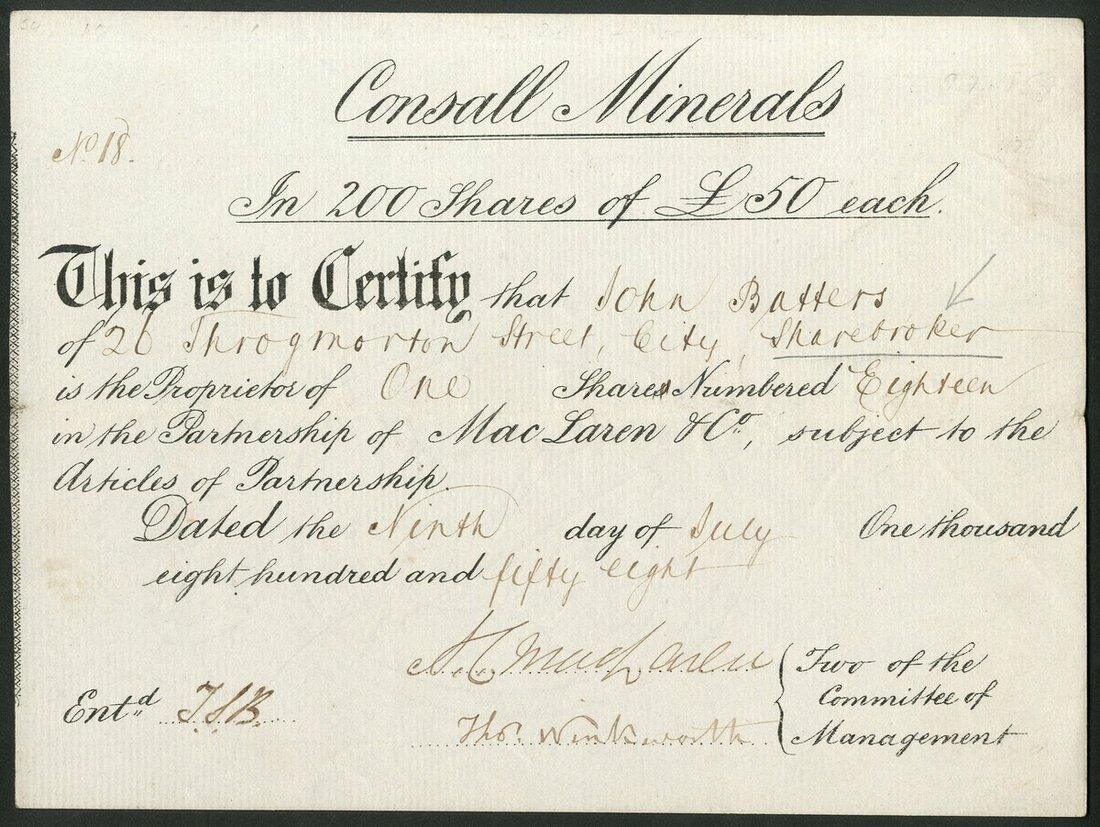 Consall Minerals
No. 18.
In 200 Shares of £50 each.
This is to Certify that John Batters
of 26 Throgmorton Street, City, Sharebroker
is the Proprietor of One Share Numbered Eighteen
in the Partnership of MacLaren & Co., subject to the
Articles of Partnership.
Dated the Ninth day of July One thousand
eight hundred and fifty eight
MacLaren
Thos. Winkworth
Two of the
Committee of
Management
Entd. T.S.B.